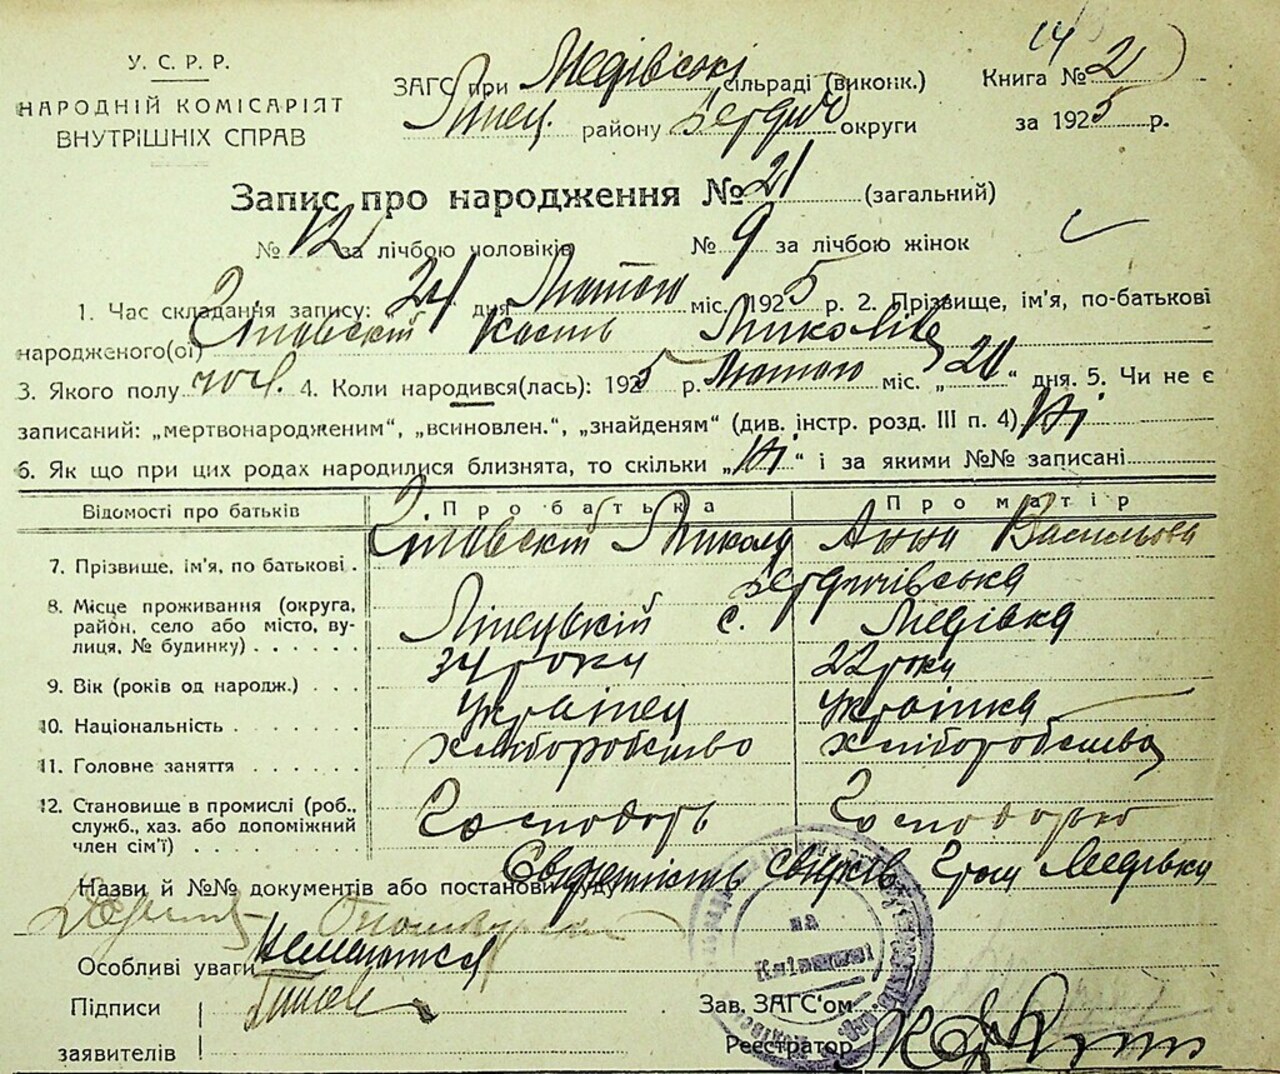 14
У. С. Р. Р.
НАРОДНІЙ КОМІСАРІЯТ
ВНУТРІШНІХ СПРАВ
ЗАГС при Медівській сільраді (виконк.)
Липец. району Бердич округи
Книга № 2
за 1925 р.
Запис про народження № 21 (загальний)
№ 12 за лічбою чоловіків № 9 за лічбою жінок
1. Час складання запису: 24 дня Лютого міс. 1925 р. 2. Прізвище, ім'я, по-батькові
народженого(ої) Кость Миколів
3. Якого полу чол. 4. Коли народився(лась): 1925 р. Лютого міс. „ “ дня. 5. Чи не є
записаний: „мертвонародженим“, „всиновлен.“, „знайденям“ (див. інстр. розд. III п. 4) Ні
6. Як що при цих родах народилися близнята, то скільки „Ні“ і за якими №№ записані
Відомості про батьків Про батька Про матір
7. Прізвище, ім'я, по батькові . Микола Анна Васильова
8. Місце проживання (округа, район, село або місто, вулиця, № будинку) . . . . . . Бердичівська
Ліпецький с. Медівка
9. Вік (років од народж.) . . . 34 роки 22 роки
10. Національність . . . . . . . Українец Українка
11. Головне заняття . . . . . . Хліборобство Хліборобство
12. Становище в промислі (роб., служб., хаз. або допоміжний член сім'ї) . . . . . . . . Господарь Господарка
Назви й №№ документів або постанови суду свідків Гром Медівки
Особливі уваги Немаєтся
Підписи
заявителів
Зав. ЗАГС'ом
Реєстратор